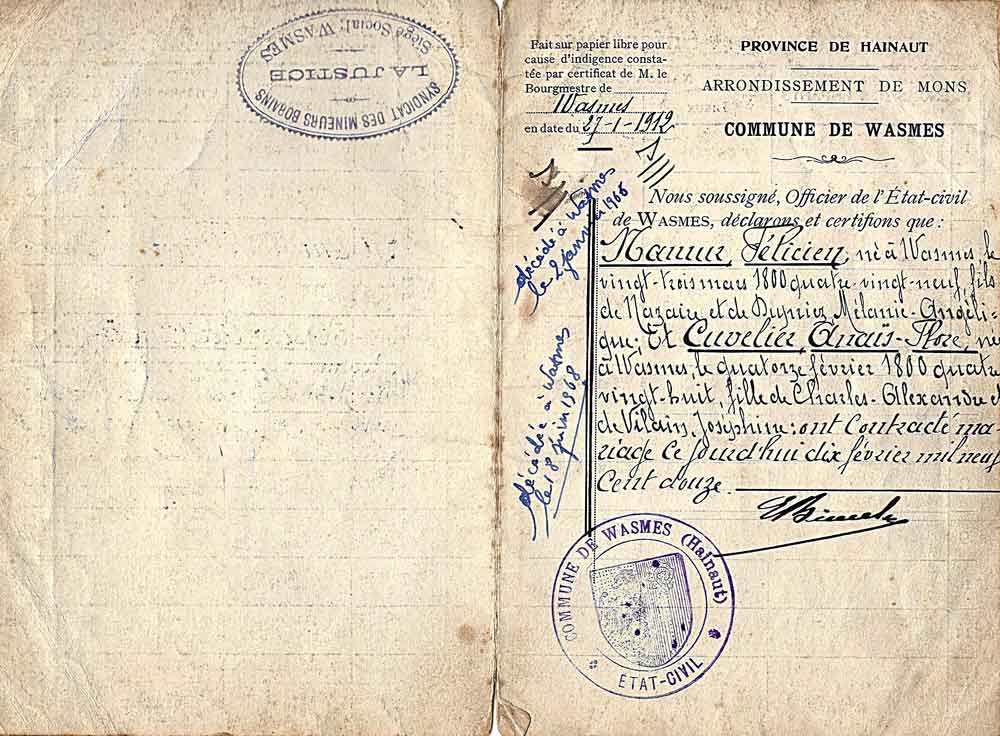 SYNDICAT DES MINEURS BORAINS
LA JUSTICE
Siège Social: WASMES
Fait sur papier libre pour
cause d'indigence consta-
tée par certificat de M. le
Bourgmestre de
Wasmes
en date du 27-1-1912
PROVINCE DE HAINAUT
ARRONDISSEMENT DE MONS
COMMUNE DE WASMES
Nous soussigné, Officier de l'État-civil
de WASMES, déclarons et certifions que :
Namur, Félicien, né à Wasmes, le
vingt-trois mars 1800 quatre-vingt-neuf, fils
de Nazaire et de Dupriez, Mélanie-Angéli-
que; Et Cuvelier, Anaïs-Flore, née
à Wasmes, le quatorze février 1800 quatre
vingt-huit, fille de Charles-Alexandre et
de Vilain, Joséphine: ont contracté ma-
riage ce jourd'hui dix février mil neuf
cent douze.
décédé à Wasmes
le 2 janvier 1966
décédée à Wasmes
le 18 juin 1968
COMMUNE DE WASMES (Hainaut)
ÉTAT-CIVIL